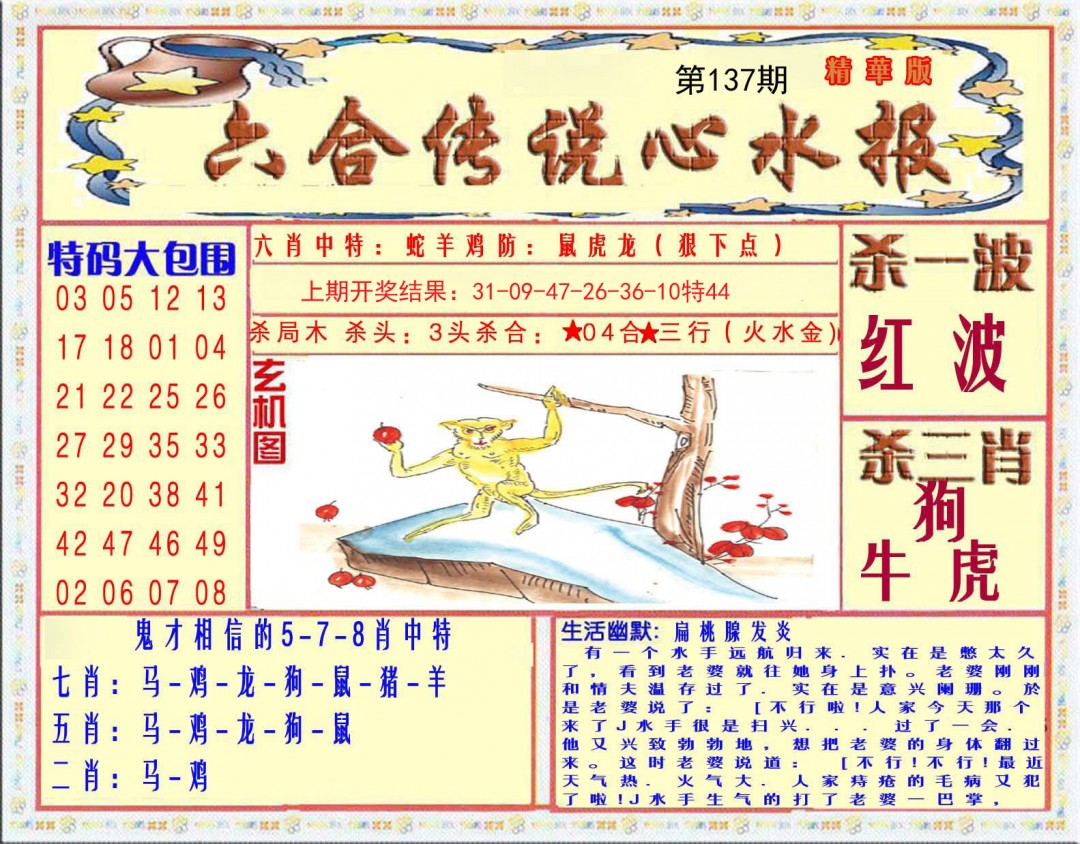 第137期
精華版
六合传说心水报
特码大包围
03 05 12 13
17 18 01 04
21 22 25 26
27 29 35 33
32 20 38 41
42 47 46 49
02 06 07 08
六肖中特：蛇羊鸡防：鼠虎龙（狠下点）
上期开奖结果：31-09-47-26-36-10特44
杀局木 杀头：3头杀合：★04合★三行(火水金)
玄机图
杀一波
红波
杀三肖
狗
牛虎
鬼才相信的5-7-8肖中特
七肖：马-鸡-龙-狗-鼠-猪-羊
五肖：马-鸡-龙-狗-鼠
二肖：马-鸡
生活幽默：扁桃腺发炎
有一个水手远航归来．实在是憋太久
了，看到老婆就往她身上扑。老婆刚刚
和情夫温存过了．实在是意兴阑珊。於
是老婆说了：［不行啦!人家今天那个
来了J水手很是扫兴．．．过了一会．
他又兴致勃勃地，想把老婆的身体翻过
来。这时老婆说道：［不行!不行!最近
天气热．火气大．人家痔疮的毛病又犯
了啦!J水手生气的打了老婆一巴掌，